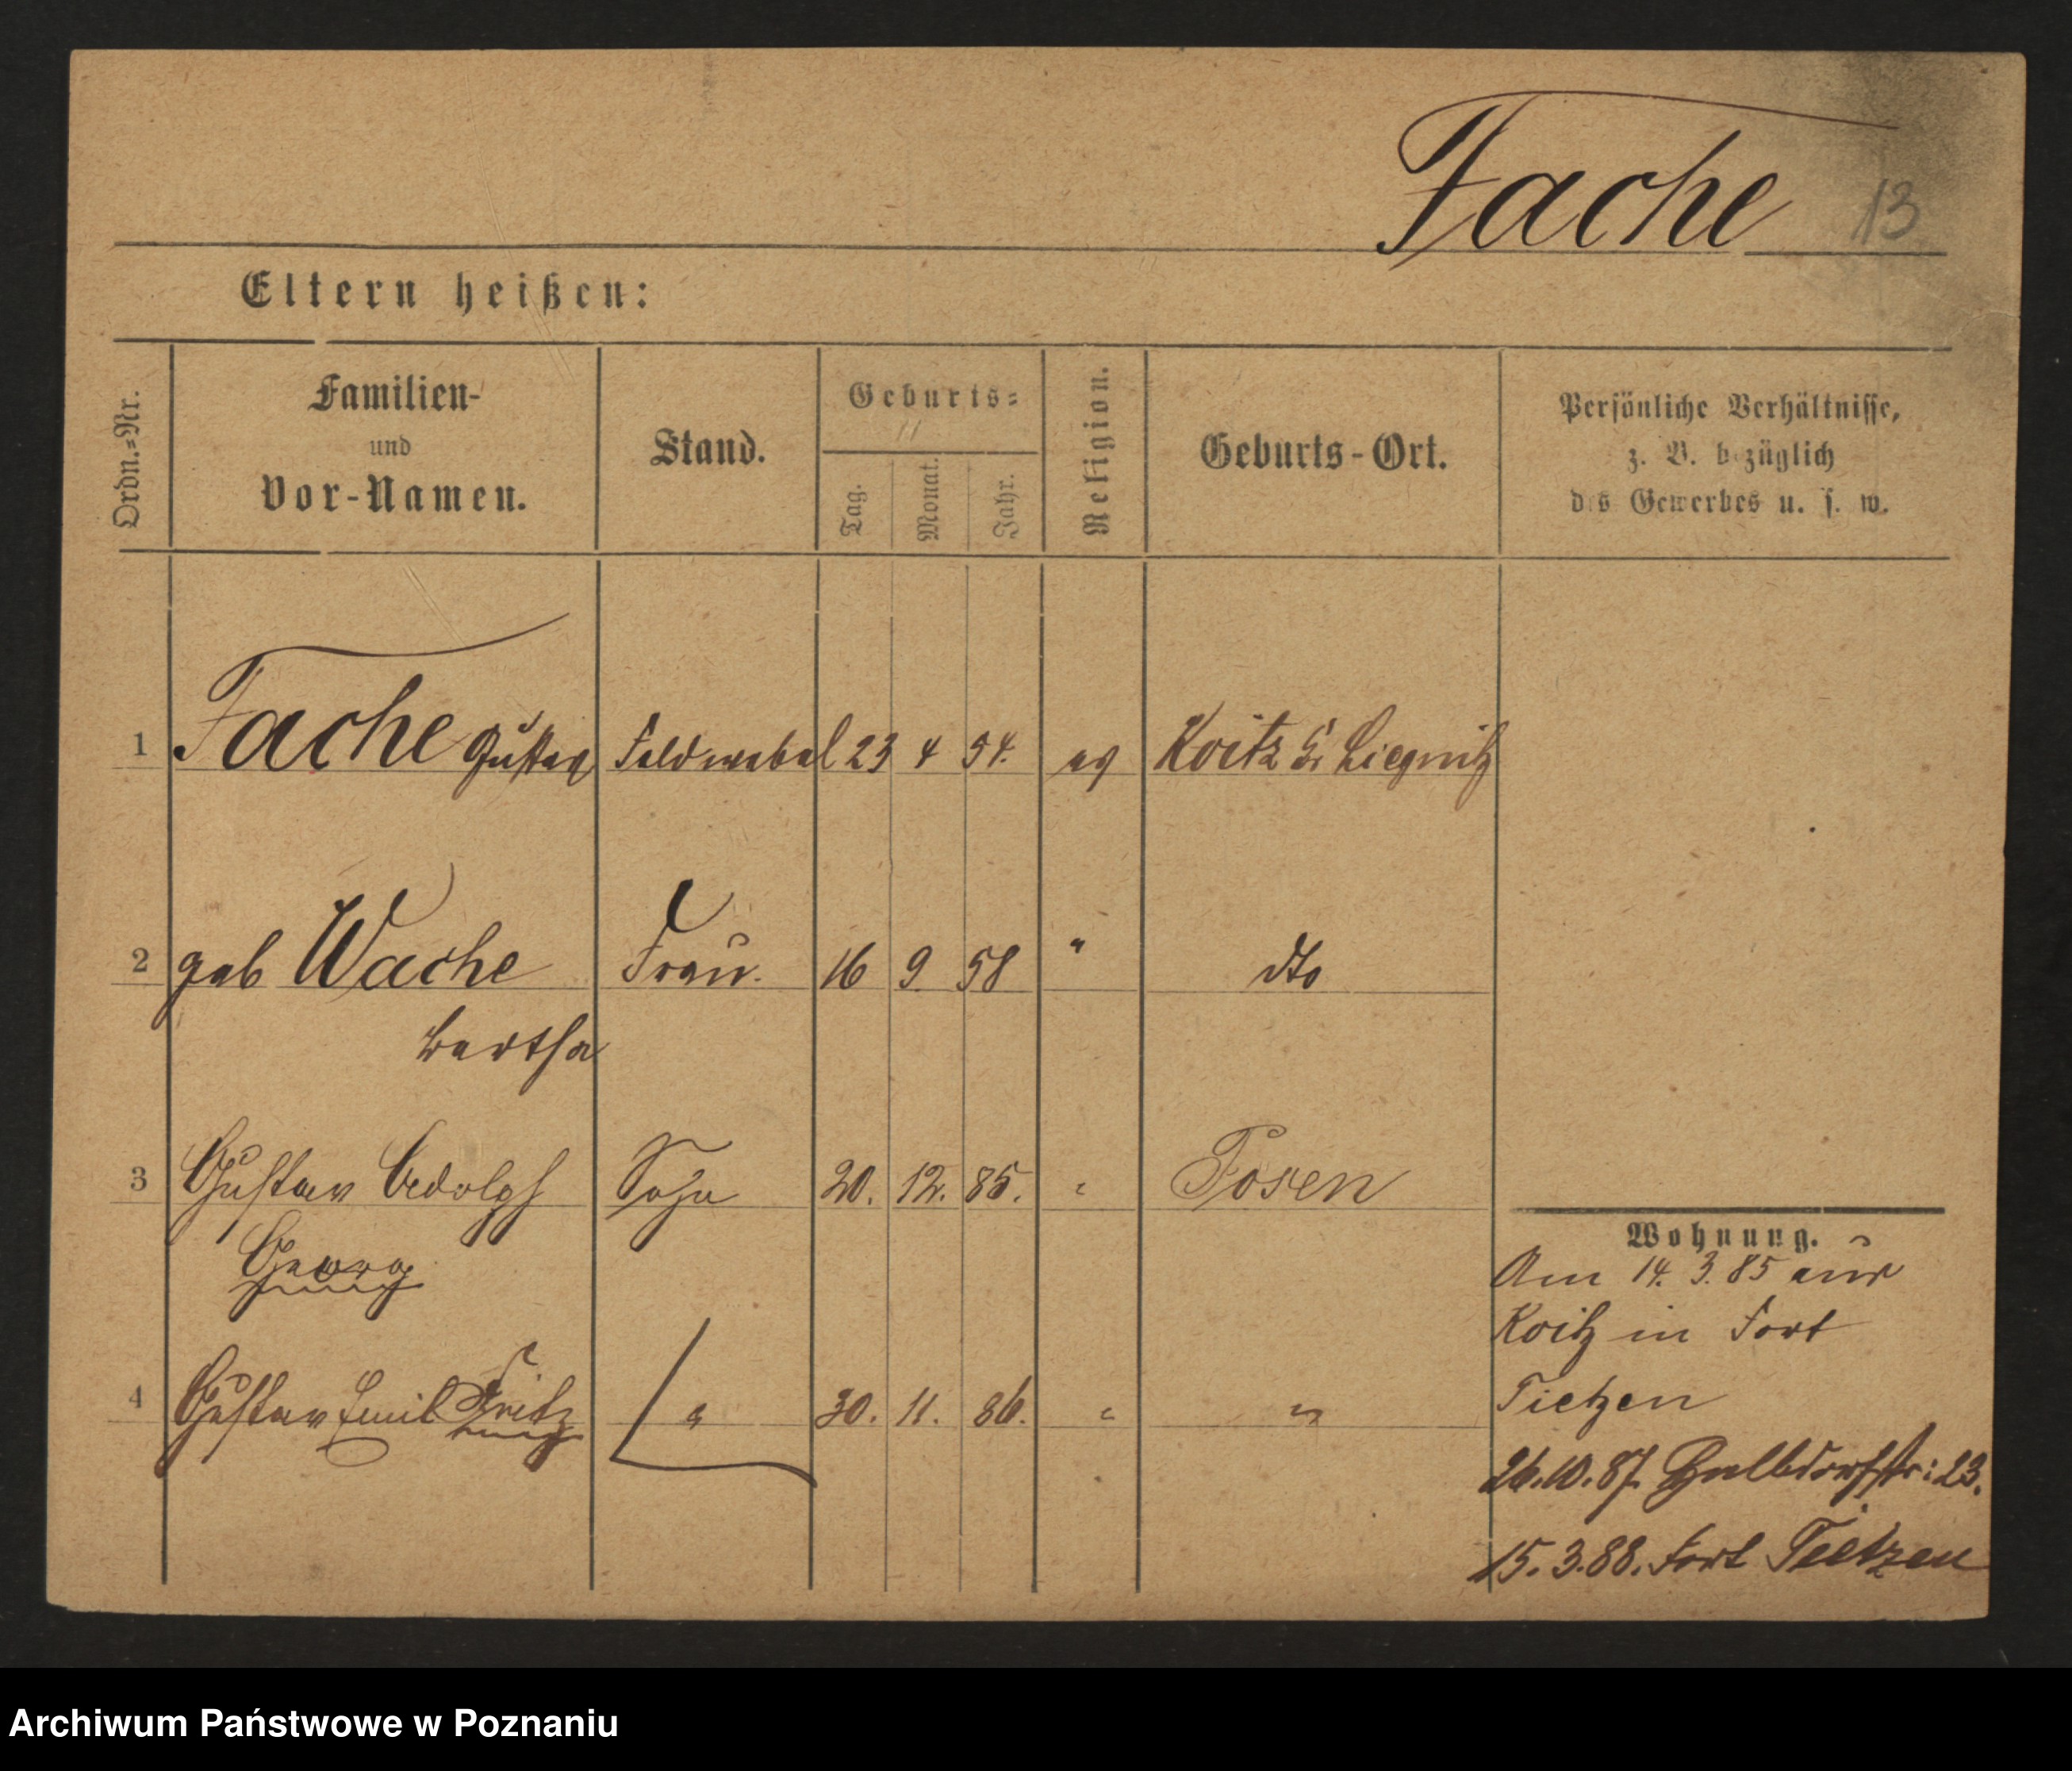 Fache 13
Eltern heißen:
Ordn.=Nr.
Familien-
und
Vor-Namen.
Stand.
Geburts=
Tag.
Monat.
Jahr.
Religion.
Geburts-Ort.
Persönliche Verhältnisse,
z. B. bezüglich
des Gewerbes u. s. w.
1 Fache Gustav Feldwebel 23 4 54. ev Koitz Liegnitz
2 geb Wache Frau. 16 9. 58 " dto
Bertha
3 Gustav Adolph Sohn 20. 12. 85. " Posen
Georg
4 Gustav Emil Fritz " 30. 11. 86. " "
Wohnung.
Am 14. 3. 85 aus
Koitz in Fort
Tietzen
26.10.87. Halbdorfstr: 23.
15.3.88. Fort Tietzen
Archiwum Państwowe w Poznaniu